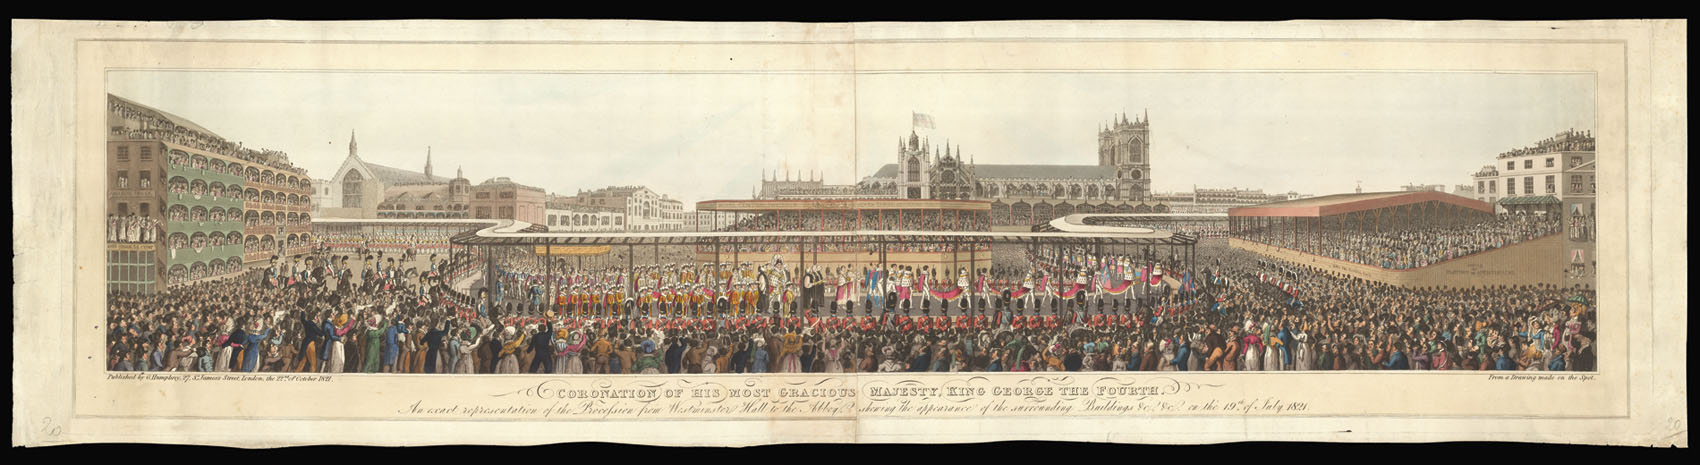 Published by G. Humphrey, 27, St. James's Street, London, the 22nd of October 1821.
From a Drawing made on the Spot.
CORONATION OF HIS MOST GRACIOUS MAJESTY, KING GEORGE THE FOURTH.
An exact representation of the Procession from Westminster Hall to the Abbey, shewing the appearance of the surrounding Buildings &c. &c. on the 19th of July 1821.
20
20